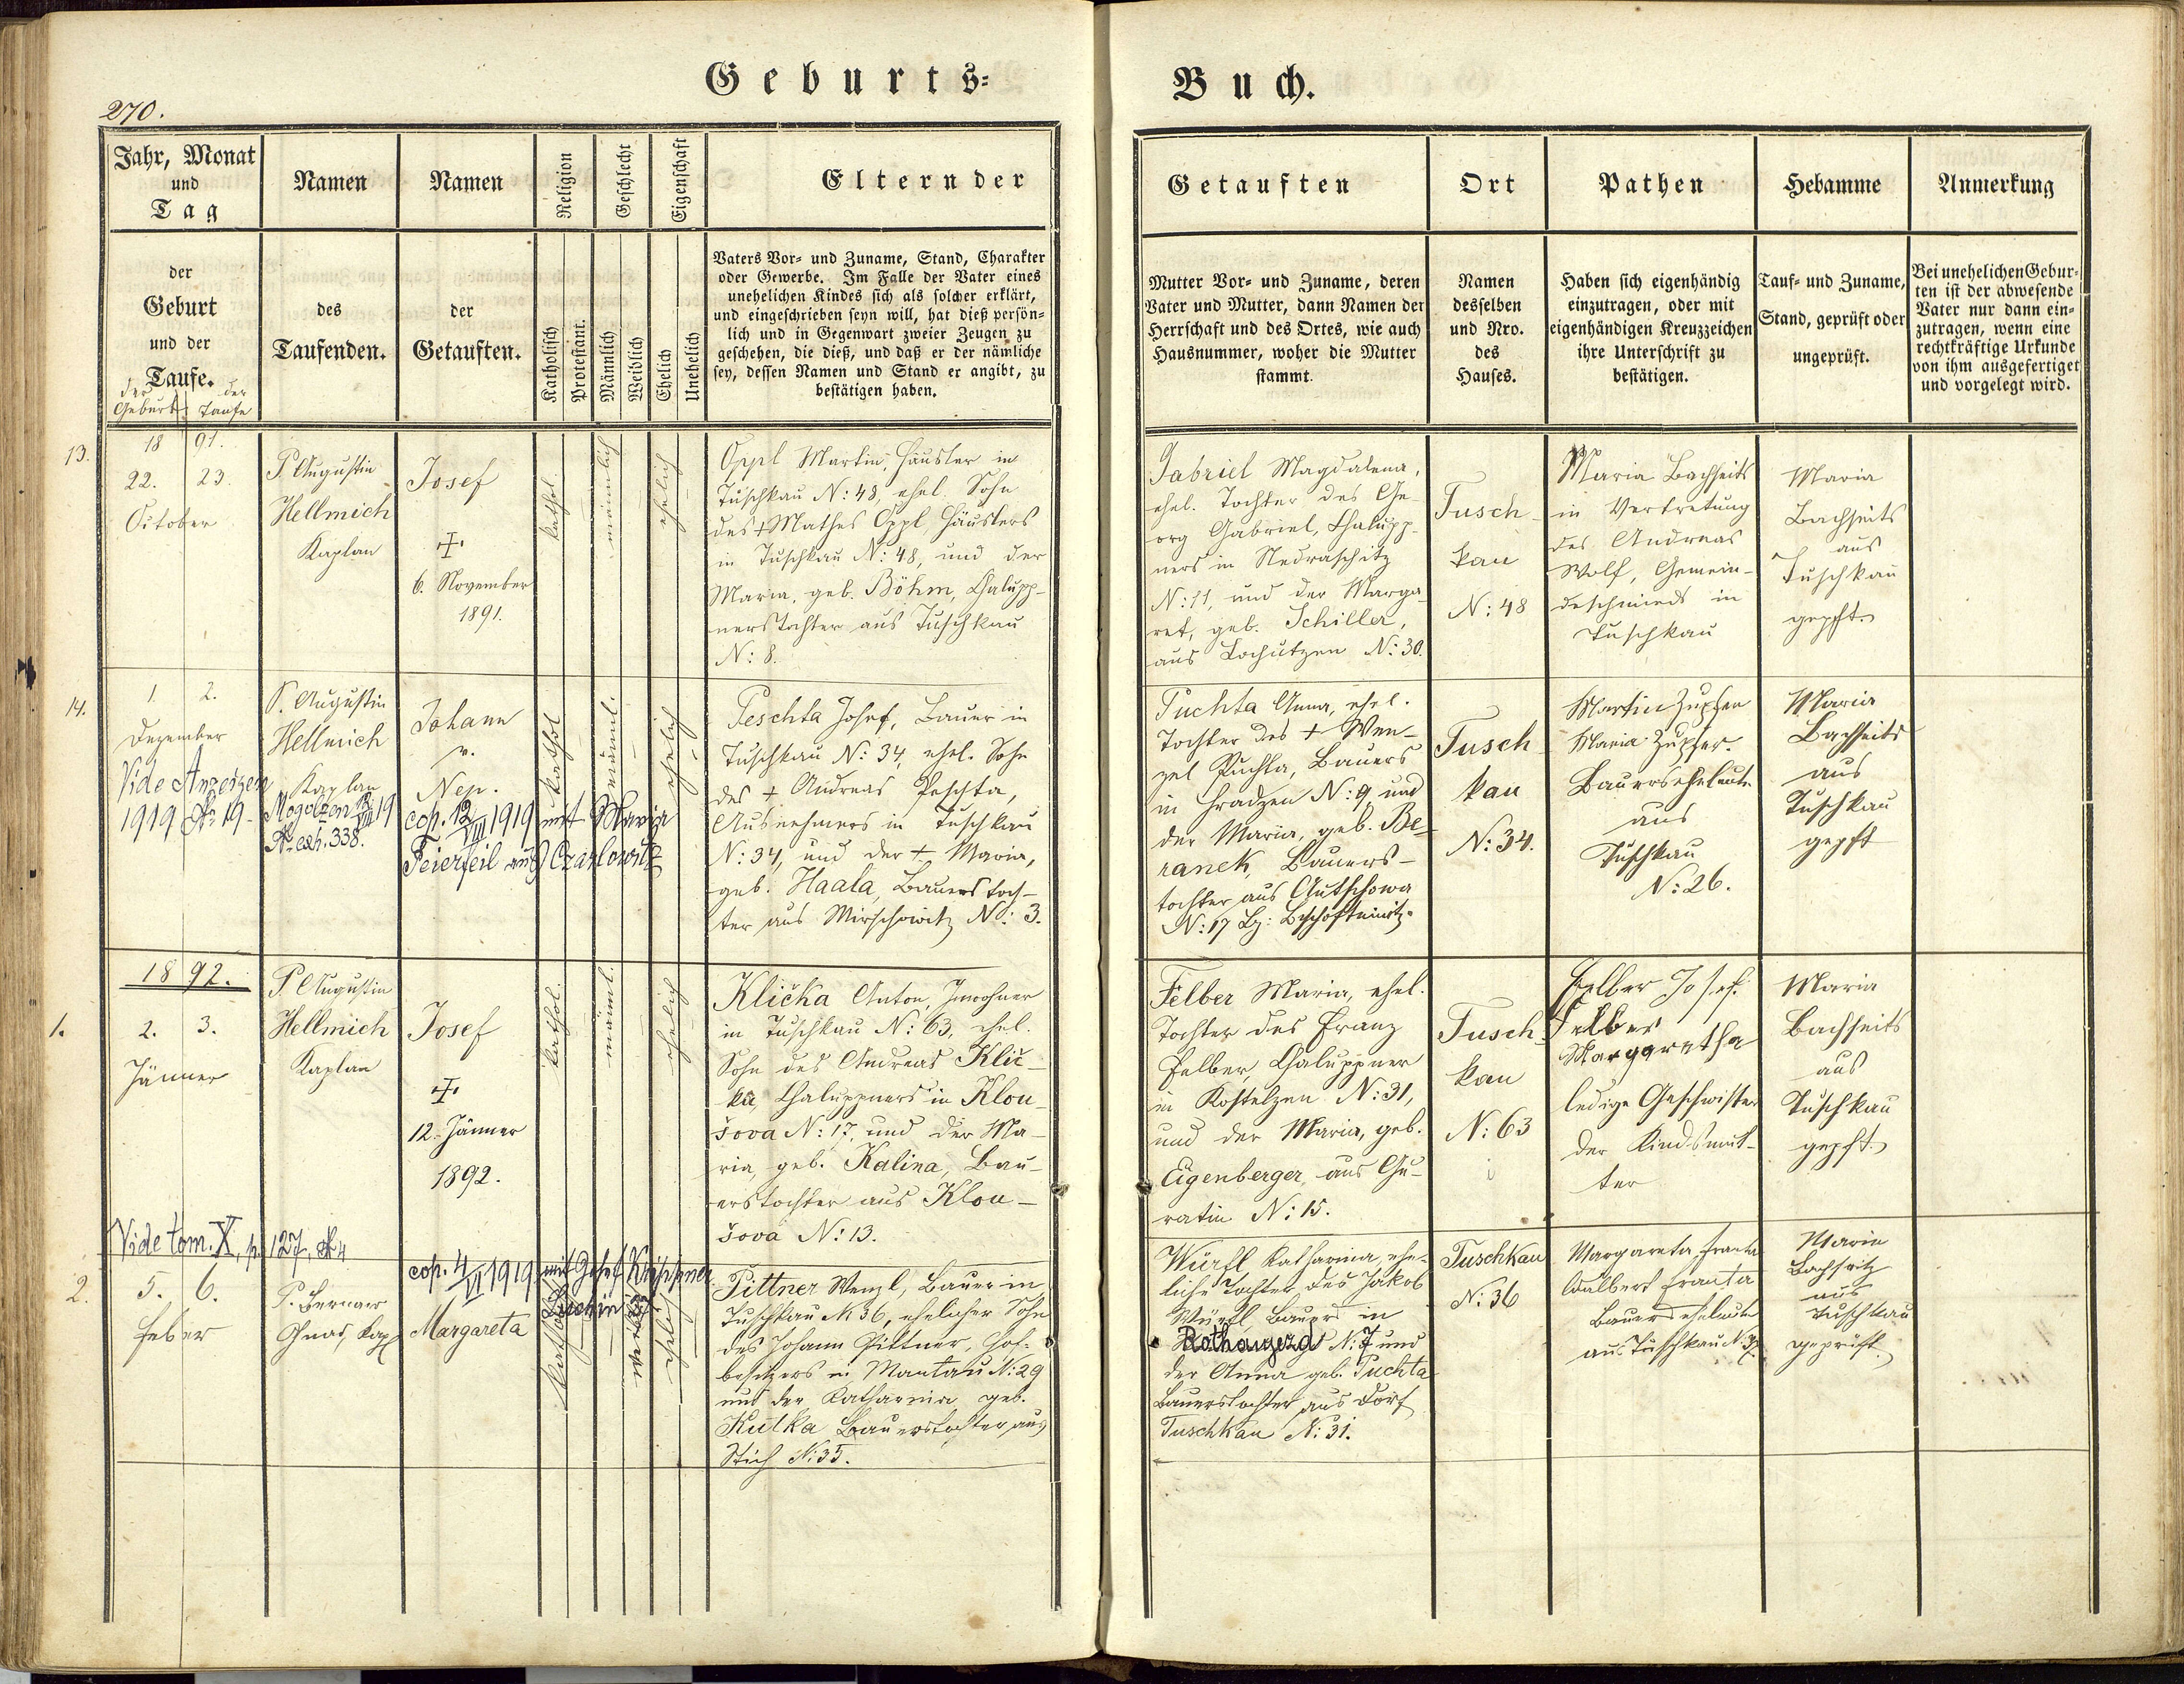 270.
Geburts-
Buch.
Jahr, Monat
und
Tag
Namen
Namen
Religion
Geschlecht
Eigenschaft
Eltern der
Getauften
Ort
Pathen
Hebamme
Anmerkung
der
Geburt
und der
Taufe.
der Geburt
der Taufe
des
Taufenden.
der
Getauften.
Katholisch
Protestant.
Männlich
Weiblich
Ehelich
Unehelich
Vaters Vor- und Zuname, Stand, Charakter
oder Gewerbe. Im Falle der Vater eines
unehelichen Kindes sich als solcher erklärt,
und eingeschrieben seyn will, hat dieß persön-
lich und in Gegenwart zweier Zeugen zu
geschehen, die dieß, und daß er der nämliche
sey, dessen Namen und Stand er angibt, zu
bestätigen haben.
Mutter Vor- und Zuname, deren
Vater und Mutter, dann Namen der
Herrschaft und des Ortes, wie auch
Hausnummer, woher die Mutter
stammt.
Namen
desselben
und Nro.
des
Hauses.
Haben sich eigenhändig
einzutragen, oder mit
eigenhändigen Kreuzzeichen
ihre Unterschrift zu
bestätigen.
Tauf- und Zuname,
Stand, geprüft oder
ungeprüft.
Bei unehelichen Gebur-
ten ist der abwesende
Vater nur dann ein-
zutragen, wenn eine
rechtkräftige Urkunde
von ihm ausgefertiget
und vorgelegt wird.
13.
18 91.
22. 23.
October
P. Augustin
Hellmich
Kaplan
Josef
6. November
1891.
kathol.
männlich
ehelich
Oppl Martin, Häusler in
Tuschkau N: 48, ehel. Sohn
des + Mathes Oppl, Häuslers
in Tuschkau N: 48, und der
Maria, geb. Böhm, Chalupp-
nerstochter aus Tuschkau
N: 8.
Gabriel Magdalena,
ehel. Tochter des Ge-
org Gabriel, Chalupp-
ners in Nedraschitz
N: 11, und der Marga-
ret, geb. Schiller,
aus Lochutzen N: 30.
Tusch-
kau
N: 48
Maria Bachheits
in Vertretung
des Andreas
Wolf, Gemein-
deschmieds in
Tuschkau
Maria
Bachheits
aus
Tuschkau
gepft.
14.
1. 2.
Dezember
Vide Anzeigen
1919 № 19.
P. Augustin
Hellmich
Kaplan
Mogolzen 12/VIII 19
№ exh. 338.
Johann
v.
Nep.
cop. 12/VIII 1919 mit Maria
Feierfeil aus Czarlowitz
kathol.
männl.
ehelich
Peschta Josef, Bauer in
Tuschkau N: 34, ehel. Sohn
des + Andreas Peschta,
Ausnehmers in Tuschkau
N: 34, und der + Maria,
geb. Haala, Bauerstoch-
ter aus Mirschowitz N: 3.
Puchta Anna, ehel.
Tochter des + Wen-
zel Puchta, Bauers
in Hradzen N: 9, und
der Maria, geb. Be-
ranek, Bauers-
tochter aus Autschowa
N: 17 Bz: Bischofteinitz.
Tusch-
kau
N: 34.
Martin Zupfer
Maria Zupfer.
Bauerseheleute
aus
Tuschkau
N: 26.
Maria
Bachheits
aus
Tuschkau
gepft
1.
1892.
2. 3.
Jänner
P. Augustin
Hellmich
Kaplan
Josef
12. Jänner
1892.
kathol.
männl.
ehelich
Klička Anton, Inwohner
in Tuschkau N: 63, ehel.
Sohn des Andreas Klič-
ka, Chaluppners in Klou-
šova N: 17, und der Ma-
ria, geb. Kalina, Bau-
erstochter aus Klou-
šova N: 13.
Felber Maria, ehel.
Tochter des Franz
Felber, Chaluppner
in Kostelzen N: 31,
und der Maria, geb.
Eigenberger, aus Gu-
ratin N: 15.
Tusch-
kau
N: 63
Felber Josef.
Felber
Margaretha
ledige Geschwister
der Kindsmut-
ter
Maria
Bachheits
aus
Tuschkau
gepft.
2.
Vide tom. X, p. 127, № 4
5. 6.
Feber
P.
Gnad, Kap.
cop. 4/VI 1919 mit Josef
Margareta
kathol.
weibl.
ehelich
Pittner Wenzl, Bauer in
Tuschkau N 36, ehelicher Sohn
des Johann Pittner, Hof-
besitzers in Mantau N: 29
und der Katharina, geb.
Kulka Bauerstochter aus
Stich N: 35.
Würfl Katharina, ehe-
liche Tochter des Jakob
Würfl Bauers in
Rothaujezd N: 7 und
der Anna geb. Puchta
Bauerstochter aus Dorf
Tuschkau N: 31.
Tuschkau
N: 36
Margareta Franta
Adalbert Franta
Bauerseheleute
aus Tuschkau N 37.
Maria
Bachheitz
aus
Tuschkau
geprüft.